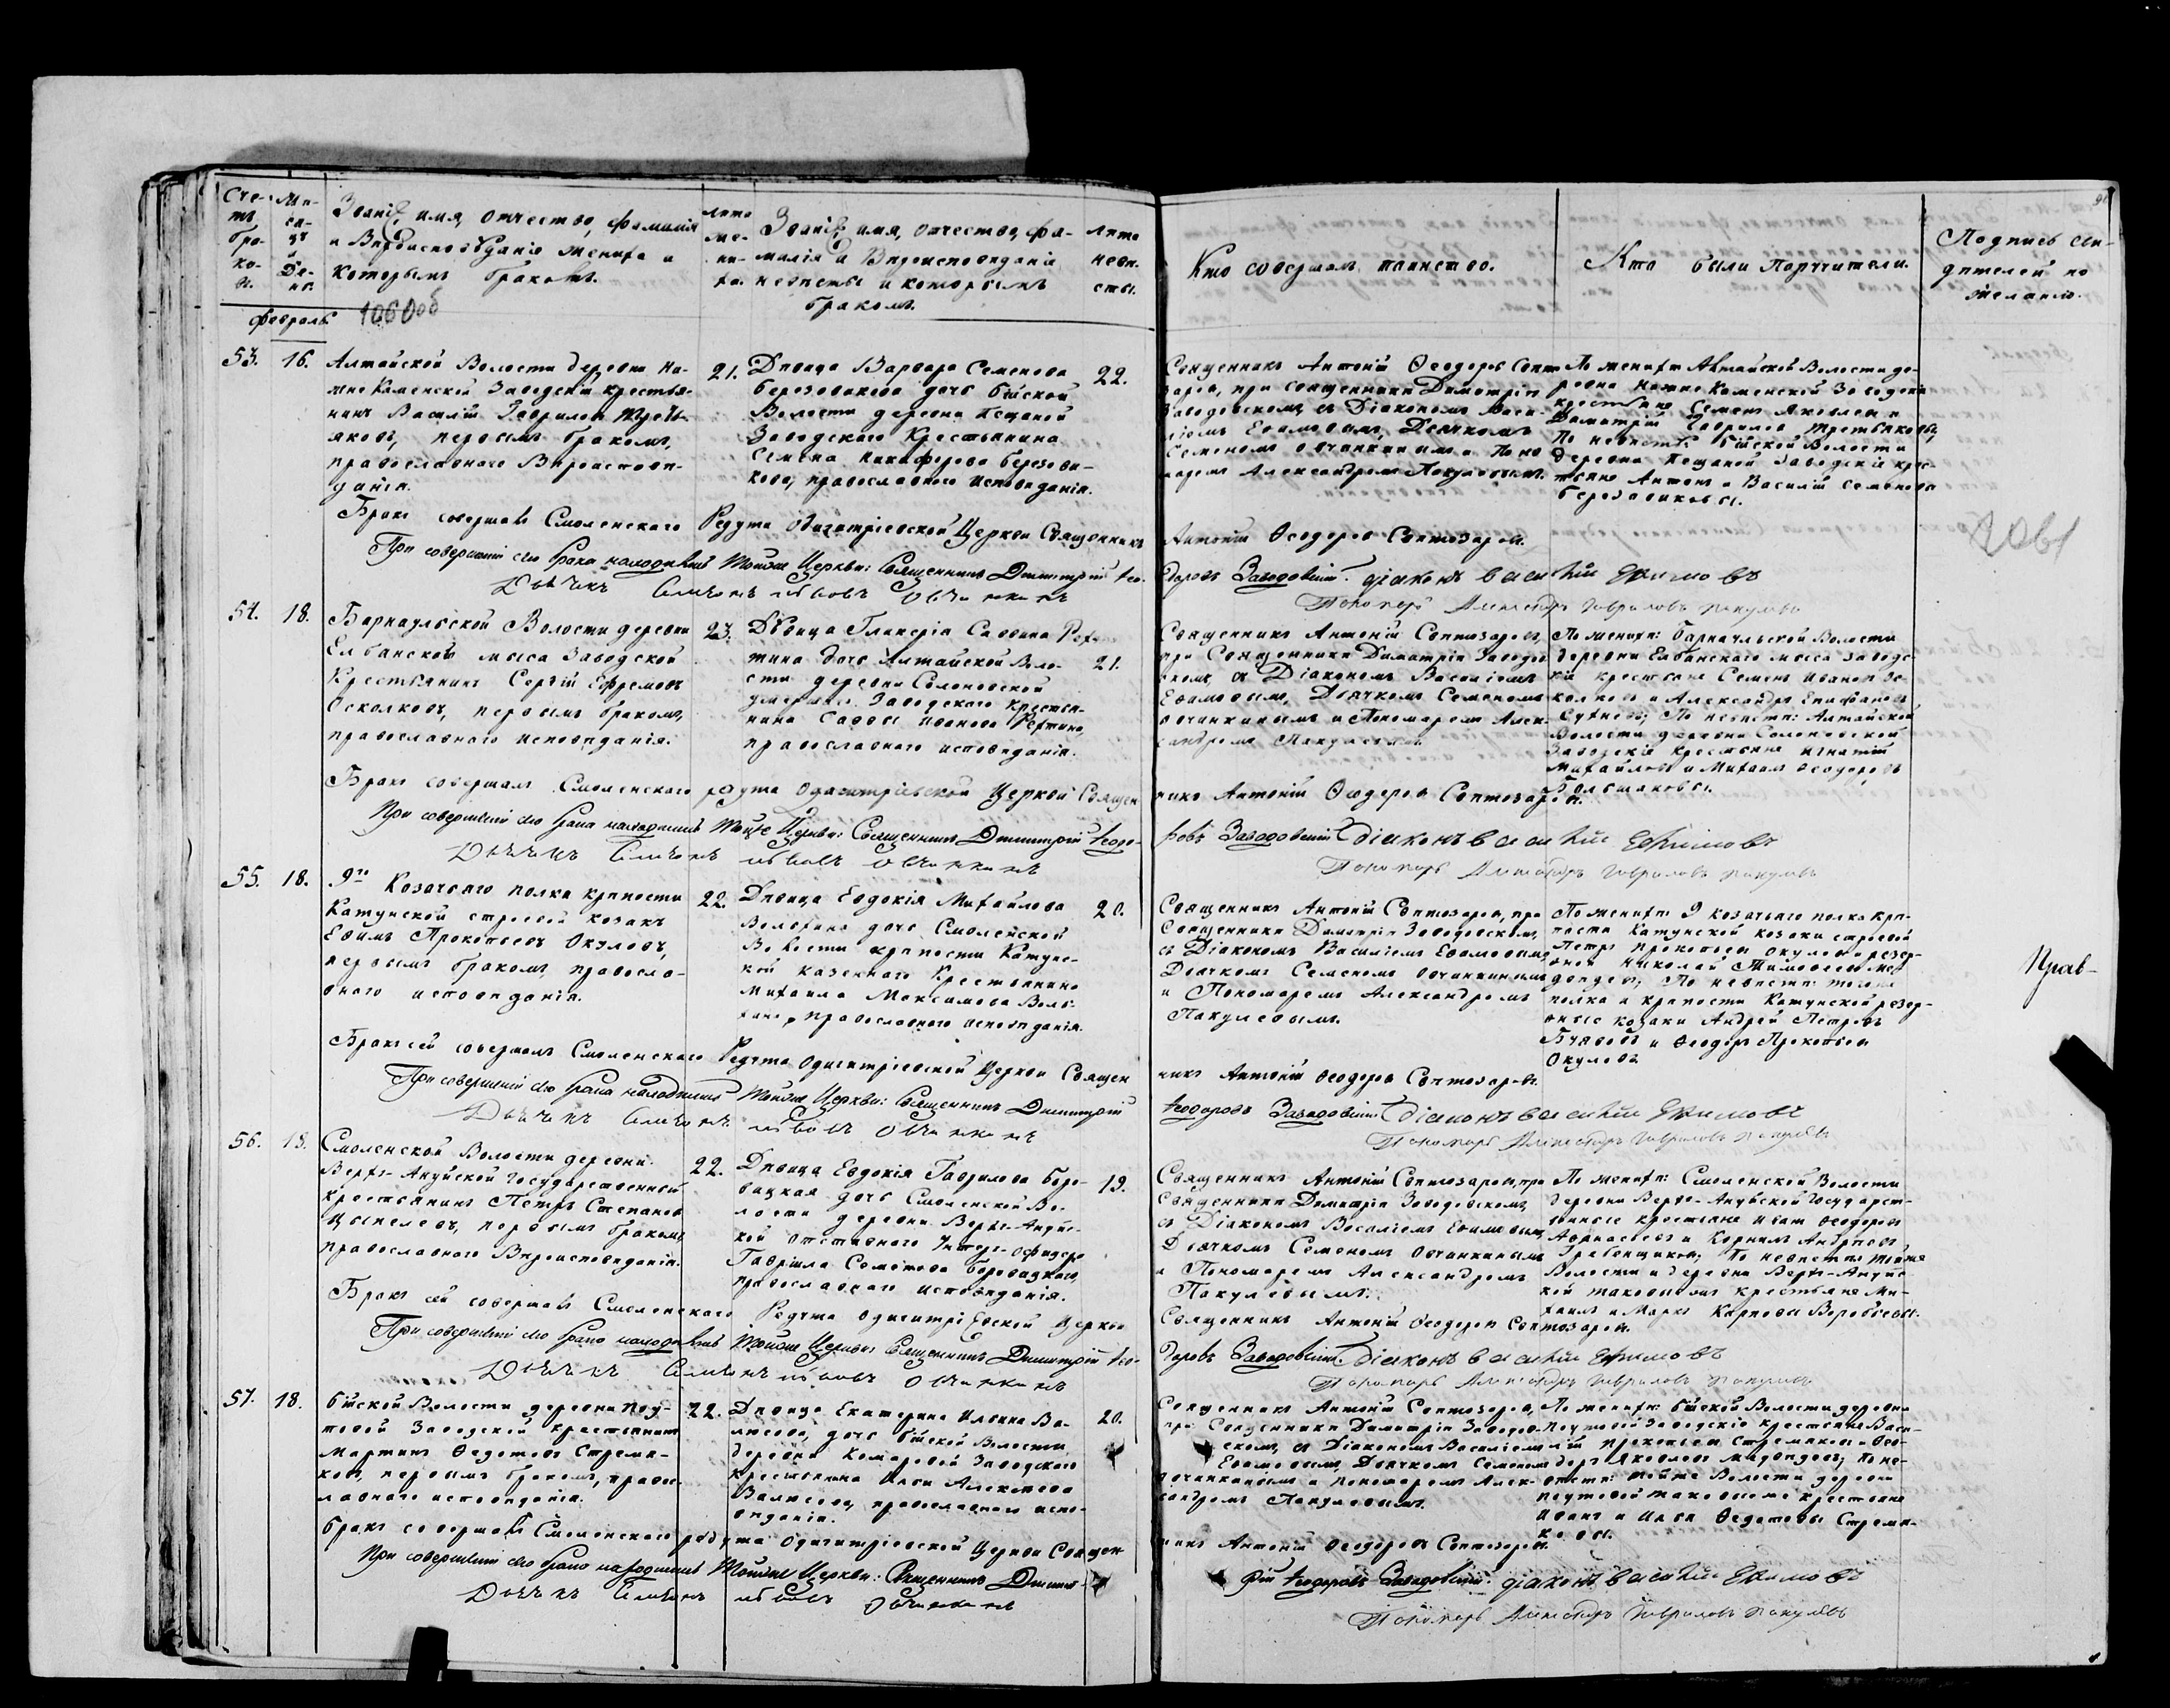 Счетъ браковъ.
Мѣсяцъ и День.
Званіе, имя, отчество, фамилія
и Вѣроисповѣданіе жениха и
которымъ бракомъ.
Лѣта жениха.
Званіе, имя, отчество, фамилія и Вѣроисповѣданіе
невѣсты и которымъ
бракомъ.
Лѣта невѣсты.
Кто совершалъ таинство.
Кто были Поручители.
Подпись свидѣтелей по
желанію.
Февраль
1060об
53. 16.
Алтайской Волости деревни Ни-
жне Каменской Заводскій крестья-
нинъ Василій Гавриловъ Треть-
яковъ, первымъ бракомъ,
православнаго Вѣроисповѣ-
данія.
21.
Дѣвица Варвара Семенова
Березовикова дочь Бійской
Волости деревни Пещаной
Заводскаго Крестьянина
Семена Никифорова Березови-
кова, православнаго исповѣданія.
22.
Священникъ Антоній Ѳеодоровъ Свѣто-
заровъ, при Священникѣ Димитріѣ
Заводовскомъ, съ Діакономъ Васи-
ліемъ Ефимовымъ, Дьячкомъ
Семеномъ Овчинкинымъ и Поно-
маремъ Александромъ Пакулевымъ.
По женихѣ Алтайской Волости де-
ревни Нижне Каменской Заводскіе
крестьяне Семенъ Яковлевъ и
Димитрій Гавриловъ Третьяковы,
По невѣстѣ: Бійской Волости
деревни Пещаной Заводскіе крес-
тьяне Антонъ и Василій Семеновы
Березовиковы.
Бракъ совершалъ Смоленскаго Редута Одигитріевской Церкви Священникъ
Антоній Ѳеодоровъ Свѣтозаровъ.
При совершеніи сего брака находились Тойже Церкви: Священникъ Димитрій Ѳео-
доровъ Заводовскій. Діаконъ Василій Ефимовъ
Дьячекъ Семенъ Овчинкинъ
Пономарь Александръ Гавриловъ Пакулевъ
1061
54. 18.
Барнаульской Волости деревни
Елбанской мыса Заводской
Крестьянинъ Сергій Ефремовъ
Осколковъ, первымъ бракомъ,
православнаго исповѣданія.
23.
Дѣвица Гликерія Саввина Рех-
тина дочь Алтайской Воло-
сти деревни Солоновской
умершаго Заводскаго Крестья-
нина Саввы Иванова Рехтина,
православнаго исповѣданія.
21.
Священникъ Антоній Свѣтозаровъ,
при Священникѣ Димитріѣ Заводов-
скомъ, съ Діакономъ Василіемъ
Ефимовымъ, Дьячкомъ Семеномъ
Овчинкинымъ и Пономаремъ Алек-
сандромъ Пакулевымъ.
По женихѣ: Барнаульской Волости
деревни Елбанскаго мыса Заводс-
кіе крестьяне Семенъ Ивановъ Ос-
колковъ и Александръ Епифановъ
По невѣстѣ: Алтайской
Волости деревни Солоновской
Заводскіе крестьяне Игнатій
Михайловъ и Михаилъ Ѳеодоровъ
Большаковы.
Бракъ совершалъ Смоленскаго редута Одигитріевской Церкви Священ-
никъ Антоній Ѳеодоровъ Свѣтозаровъ.
При совершеніи сего брака находились Тойже Церкви: Священникъ Димитрій Ѳеодо-
ровъ Заводовскій Діаконъ Василій Ефимовъ
Дьячекъ Семенъ Овчинкинъ
Пономарь Александръ Гавриловъ Пакулевъ
55. 18.
9го Козачьяго полка крѣпости
Катунской строевой козакъ
Ефимъ Прокопьевъ Окуловъ,
первымъ бракомъ, правосла-
внаго исповѣданія.
22.
Дѣвица Евдокія Михайлова
дочь Смоленской
Волости крѣпости Катунс-
кой казеннаго Крестьянина
Михаила Максимова
православнаго исповѣданія.
20.
Священникъ Антоній Свѣтозаровъ, при
Священникѣ Димитріѣ Заводовскомъ,
съ Діакономъ Василіемъ Ефимовымъ,
Дьячкомъ Семеномъ Овчинкинымъ
и Пономаремъ Александромъ
Пакулевымъ.
По женихѣ: 9 козачьяго полка крѣ-
пости Катунской козаки строевой
Петръ Прокопьевъ Окуловъ и резер-
вной Николай Тимофеевъ Ме-
двѣдевъ; По невѣстѣ: тогоже
полка и крѣпости Катунской резер-
вные козаки Андрей Петровъ
и Ѳеодоръ Прокопьевъ
Окуловъ
Бракъ сей совершалъ Смоленскаго Редута Одигитріевской Церкви Священ-
никъ Антоній Ѳеодоровъ Свѣтозаровъ.
При совершеніи сего брака находились Тойже Церкви: Священникъ Димитрій
Ѳеодоровъ Заводовскій Діаконъ Василій Ефимовъ
Дьячекъ Семенъ Овчинкинъ
Пономарь Александръ Гавриловъ Пакулевъ
56. 18.
Смоленской Волости деревни
Верхъ-Ануйской Государственный
крестьянинъ Петръ Степановъ
Цыпелевъ, первымъ бракомъ,
православнаго Вѣроисповѣданія.
22.
Дѣвица Евдокія ГавриловаБоро-
вацкая дочь Смоленской Во-
лости деревни Верхъ-Ануйс-
кой отставного Унтеръ-офицера
Гавріила
православнаго исповѣданія.
19.
Священникъ Антоній Свѣтозаровъ, при
Священникѣ Димитріѣ Заводовскомъ,
съ Діакономъ Василіемъ Ефимовымъ,
Дьячкомъ Семеномъ Овчинкинымъ
и Пономаремъ Александромъ
Пакулевымъ.
По женихѣ: Смоленской Волости
деревни Верхъ-Ануйской Государст-
венные крестьяне Иванъ Ѳеодоровъ
и Корнилъ Андреевъ
Гребенщиковъ; По невѣстѣ: тойже
Волости и деревни Верхъ-Ануйс-
кой таковыежъ крестьяне Ми-
хаилъ и Маркъ Карповы Воробьевы.
Бракъ сей совершалъ Смоленскаго Редута Одигитріевской Церкви
Священникъ Антоній Ѳеодоровъ Свѣтозаровъ.
При совершеніи сего брака находились Тойже Церкви: Священникъ Димитрій Ѳео-
доровъ Заводовскій. Діаконъ Василій Ефимовъ
Дьячекъ Семенъ Овчинкинъ
Пономарь Александръ Гавриловъ Пакулевъ
57. 18.
Бійской Волости деревни Плу-
товой Заводской крестьянинъ
Мартинъ Ѳедотовъ Стремя-
ковъ, первымъ бракомъ, правос-
лавнаго исповѣданія.
22.
Дѣвица Екатерина Ильина
дочь Бійской Волости
деревни Комаровой Заводскаго
Крестьянина Ильи Алексѣева
православнаго испо-
вѣданія.
20.
Священникъ Антоній Свѣтозаровъ,
при Священникѣ Димитріѣ Заводов-
скомъ, съ Діакономъ Василіемъ
Ефимовымъ, Дьячкомъ Семеномъ
Овчинкинымъ и Пономаремъ Алек-
сандромъ Пакулевымъ.
По женихѣ: Бійской Волости деревни
Плутовой Заводскіе крестьяне Васи-
лій Прокопьевъ Стремяковъ и Ѳео-
доръ Яковлевъ Медвѣдевъ; По не-
вѣстѣ: тойже Волости деревни
Плутовой таковыеже крестьяне
Иванъ и Илья Ѳедотовы Стремя-
ковы.
Бракъ совершалъ Смоленскаго редута Одигитріевской Церкви Священ-
никъ Антоній Ѳеодоровъ Свѣтозаровъ.
При совершеніи сего брака находились Тойже Церкви: Священникъ Димит-
рій Ѳеодоровъ Заводовскій. Діаконъ Василій Ефимовъ
Дьячекъ Семенъ Овчинкинъ
Пономарь Александръ Гавриловъ Пакулевъ